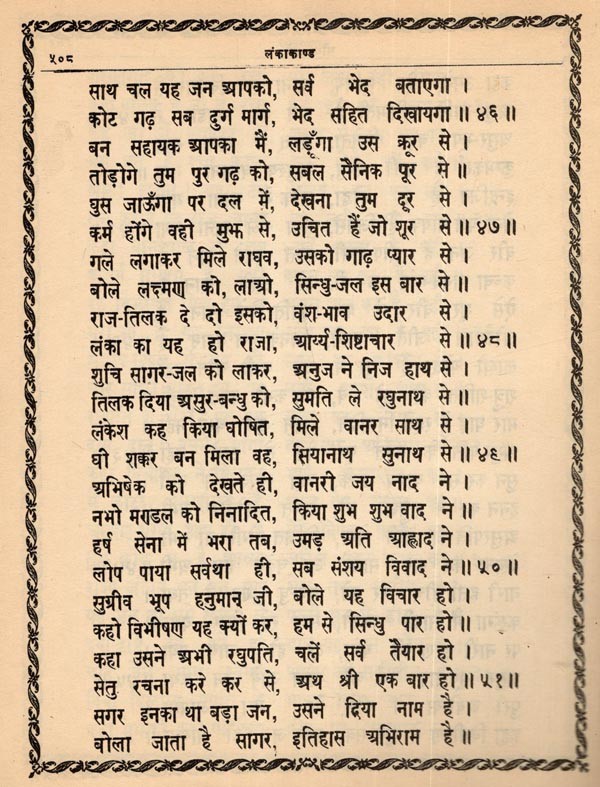 ५०८
लंकाकाण्ड
साथ चल यह जन आपको, सर्व भेद बताएगा ।
कोट गढ़ सब दुर्ग मार्ग, भेद सहित दिखायगा ॥ ४६ ॥
बन सहायक आपका मैं, लड़ूँगा उस क्रूर से ।
तोड़ोगे तुम पुर गढ़ को, सबल सैनिक पूर से ॥
घुस जाऊँगा पर दल में, देखना तुम दूर से ।
कर्म होंगे वही मुझ से, उचित हैं जो शूर से ॥ ४७ ॥
गले लगाकर मिले राघव, उसको गाढ़ प्यार से ।
बोले लक्ष्मण को, लाओ, सिन्धु-जल इस बार से ॥
राज-तिलक दे दो इसको, वंश-भाव उदार से ।
लंका का यह हो राजा, आर्य्य-शिष्टाचार से ॥ ४८ ॥
शुचि सागर-जल को लाकर, अनुज ने निज हाथ से ।
तिलक दिया असुर-बन्धु को, सुमति ले रघुनाथ से ॥
लंकेश कह किया घोषित, मिले वानर साथ से ।
घी शक्कर बन मिला वह, सियानाथ सुनाथ से ॥ ४९ ॥
अभिषेक को देखते ही, वानरी जय नाद ने ।
नभो मण्डल को निनादित, किया शुभ शुभ वाद ने ॥
हर्ष सेना में भरा तब, उमड़ अति आह्लाद ने ।
लोप पाया सर्वथा ही, सब संशय विवाद ने ॥ ५० ॥
सुग्रीव भूप हनुमान् जी, बोले यह विचार हो ।
कहो विभीषण यह क्यों कर, हम से सिन्धु पार हो ॥
कहा उसने अभी रघुपति, चलें सर्व तैयार हो ।
सेतु रचना करे कर से, अथ श्री एक बार हो ॥ ५१ ॥
सगर इनका था बड़ा जन, उसने दिया नाम है ।
बोला जाता है सागर, इतिहास अभिराम है ॥